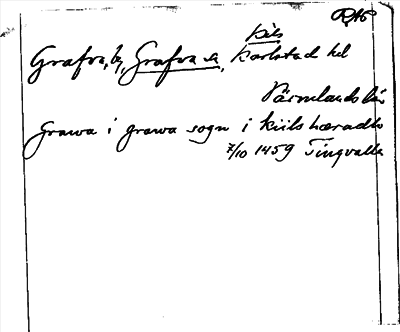 RAp
Kils
Grafva, by, Grafva sn, Karlstad hd
Värmlands län
Grawa i grawa sogn i kiils hæradh
7/10 1459 Tingvalla